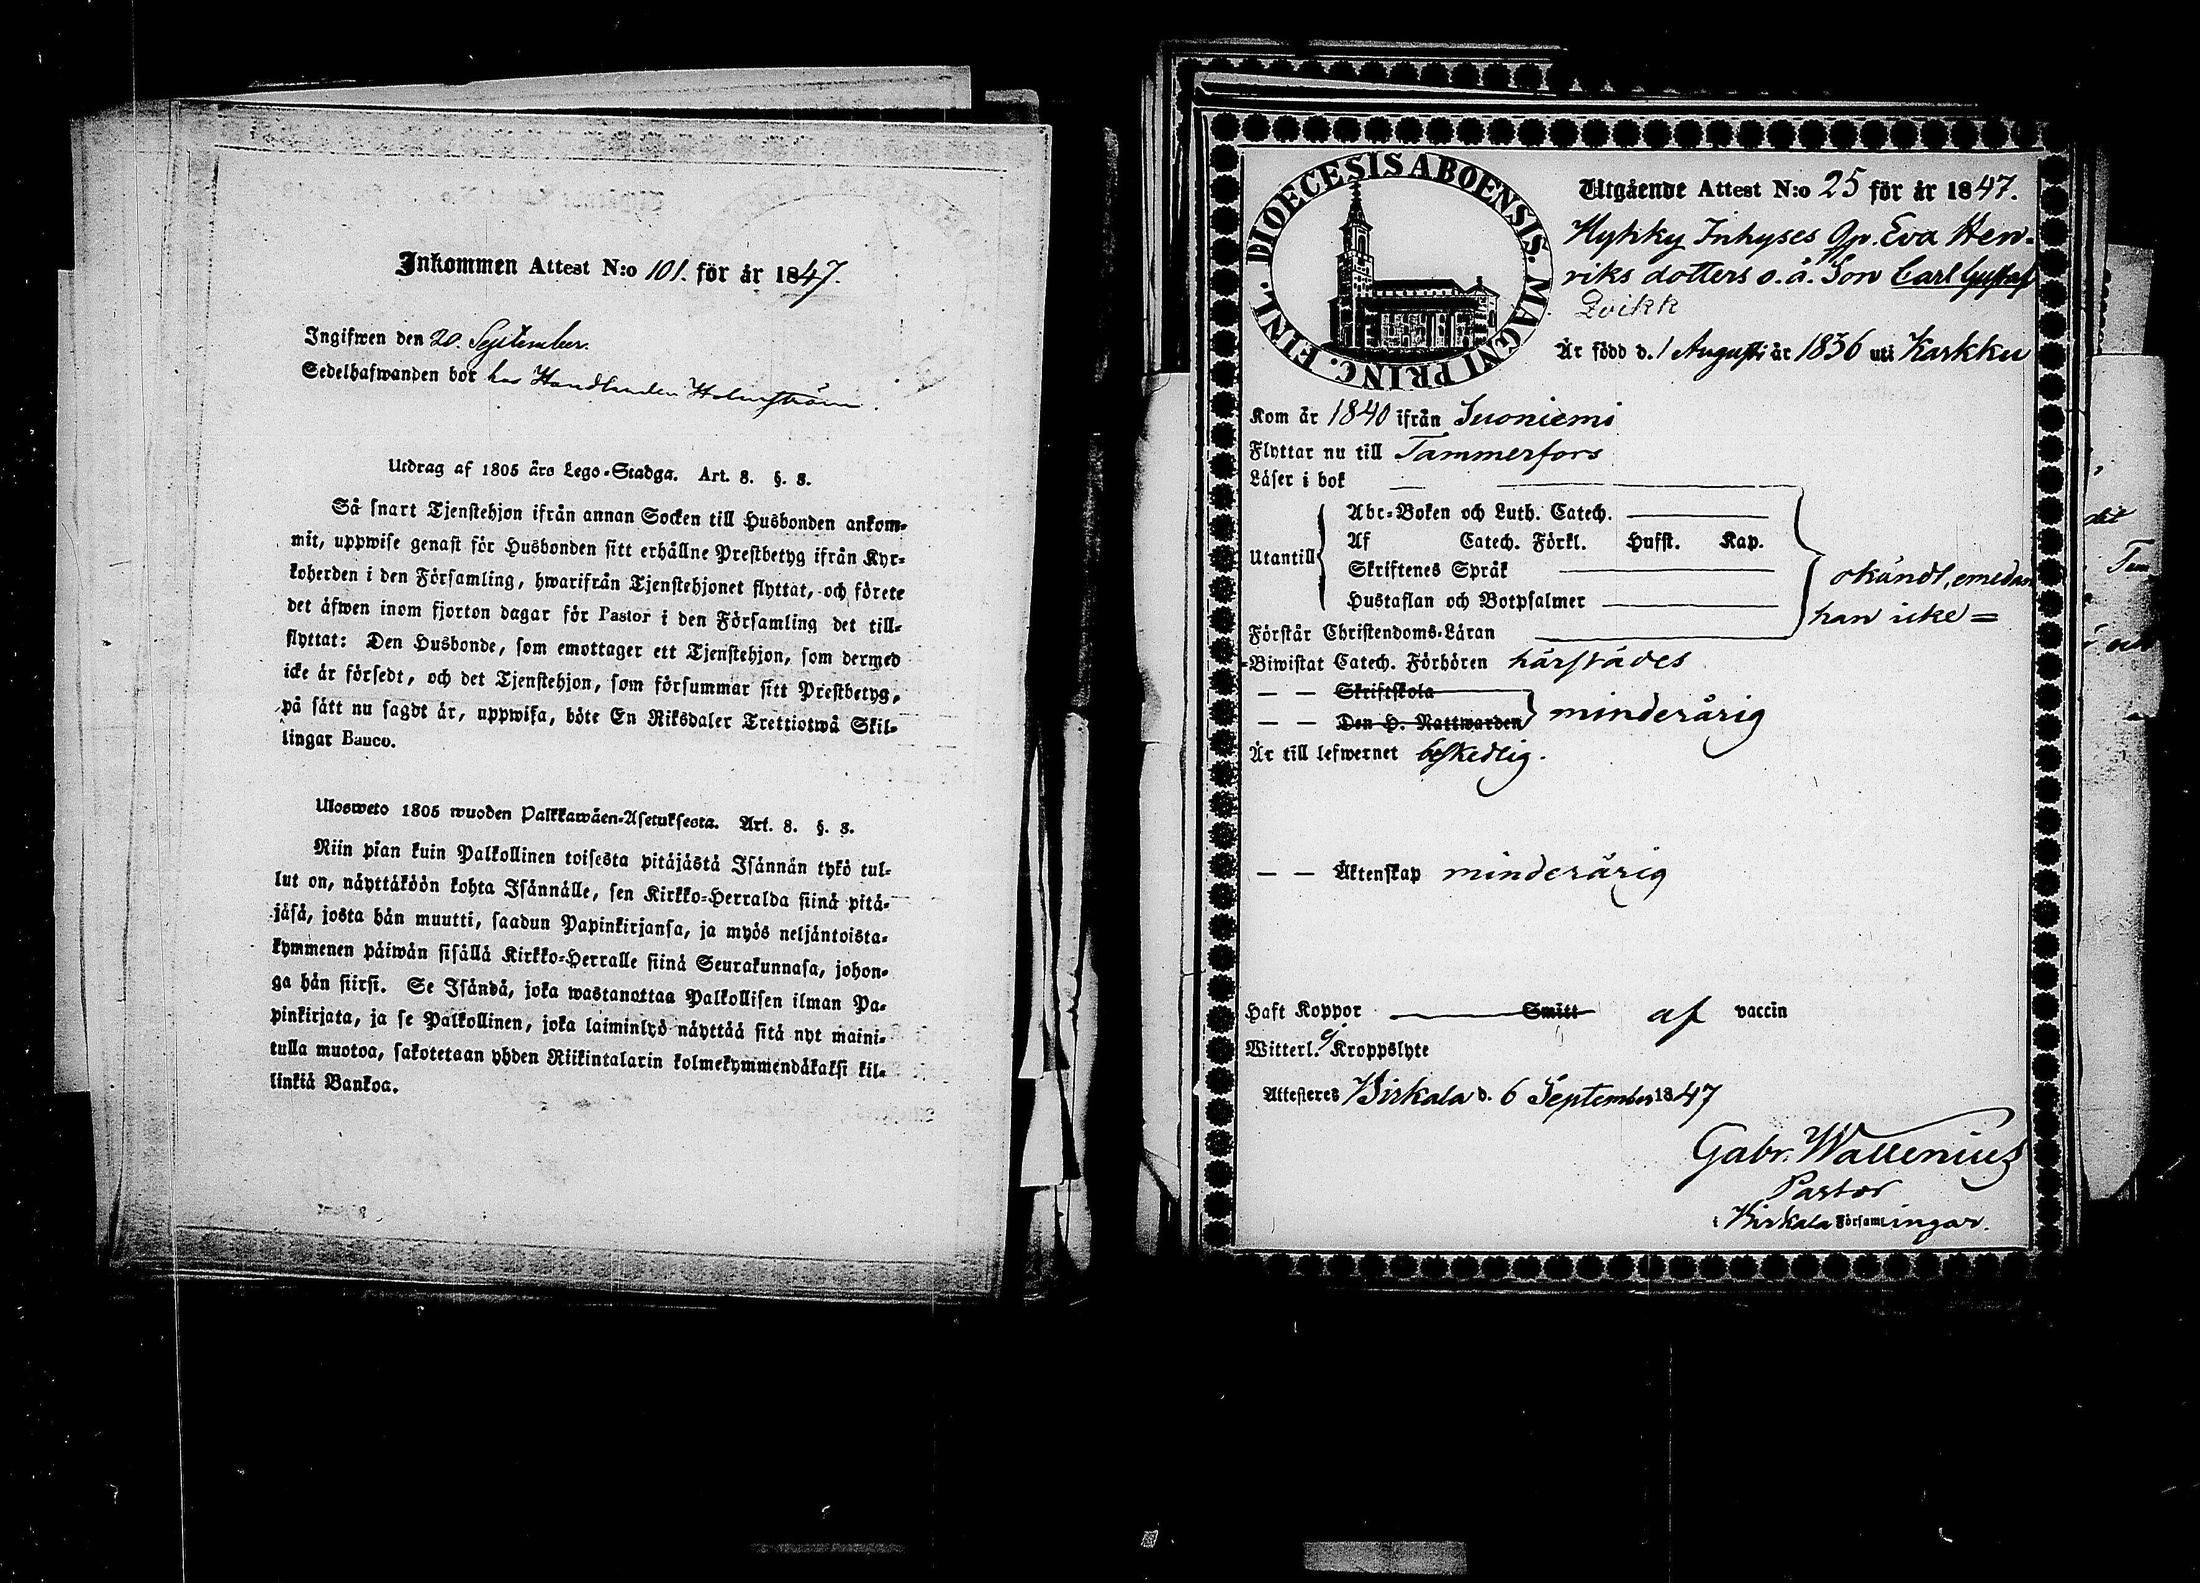 Inkommen Attest N:o 101. för år 1847.
Ingifwen den 20. September.
Sedelhafwanden bor hos Handlanden Holmström.
Utdrag af 1805 års Lego-Stadga. Art. 8. §. 8.
Så snart Tjenstehjon ifrån annan Socken till Husbonden ankom-
mit, uppwise genast för Husbonden sitt erhållne Prestbetyg ifrån Kyr-
koherden i den Församling, hwarifrån Tjenstehjonet flyttat, och förete
det äfwen inom fjorton dagar för Pastor i den Församling det till-
flyttat: Den Husbonde, som emottager ett Tjenstehjon, som dermed
icke är försedt, och det Tjenstehjon, som försummar sitt Prestbetyg,
på sätt nu sagdt är, uppwisa, böte En Riksdaler Trettiotwå Skil-
lingar Banco.
Ulosweto 1805 wuoden Palkkawäen-Asetuksesta. Art. 8. §. 8.
Niin pian kuin Palkollinen toisesta pitäjästä Isännän tykö tul-
lut on, näyttäköön kohta Isännälle, sen Kirkko-Herralda siinä pitä-
jäsä, josta hän muutti, saadun Papinkirjansa, ja myös neljäntoista-
kymmenen päiwän sisällä Kirkko-Herralle siinä Seurakunnasa, johon-
ga hän siirsi. Se Isändä, joka wastanottaa Palkollisen ilman Pa-
pinkirjata, ja se Palkollinen, joka laiminlyö näyttää sitä nyt maini-
tulla muotoa, sakotetaan yhden Riikintalarin kolmekymmendäkaksi kil-
linkiä Bankoa.
DIOECESIS ABOENSIS. MAGNI PRINC. FINL.
Utgående Attest N:o 25 för år 1847.
Hykky Inhyses Qp. Eva Hen-
riks dotters o. ä. Son Carl Gustaf
Qvikk
Är född d. 1 Augusti år 1836 uti Karkku
Kom år 1840 ifrån Suoniemi
Flyttar nu till Tammerfors
Läser i bok —
Abc-Boken och Luth. Catech.
Utantill Af Catech. Förkl. Husst. Kap.
Skriftenes Språk
Hustaflan och Botpsalmer
Förstår Christendoms-Läran
okändt, emedan
han icke =
=Biwistat Catech. Förhören härstädes
— — Skriftskola
— — Den H. Nattwarden minderårig
Är till lefwernet beskedlig.
— — Äktenskap minderårig
Haft Koppor Smitt af vaccin
Witterl. ej Kroppslyte
Attesteres Birkala d. 6 September 1847
Gabr. Wallenius
Pastor
i Birkala Församlingar.